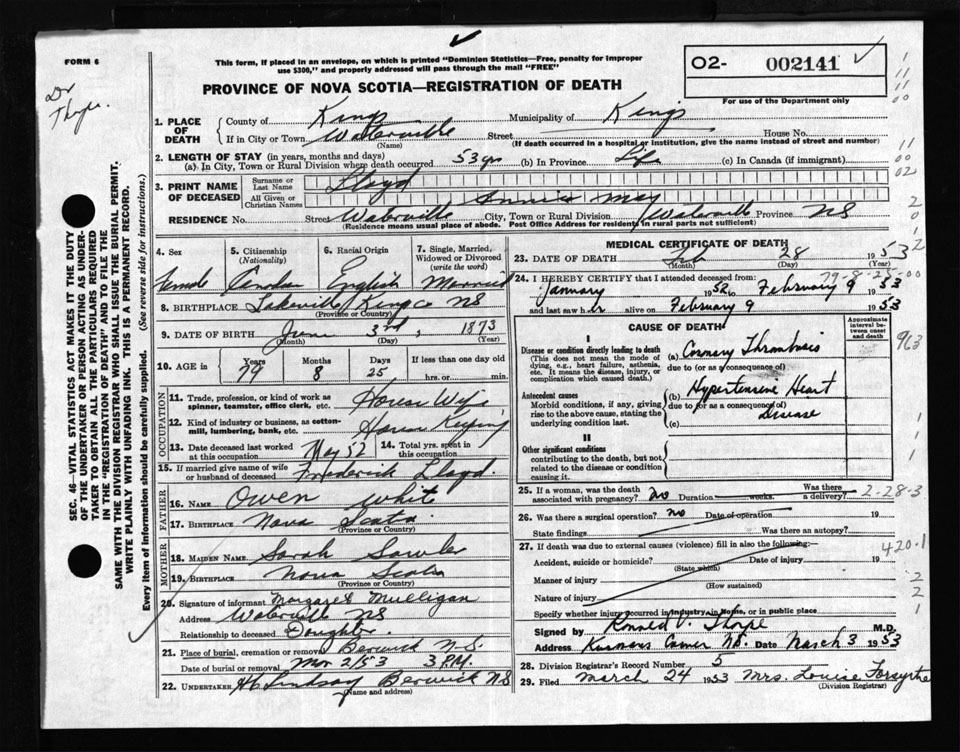 FORM 6
This form, if placed in an envelope, on which is printed "Dominion Statistics—Free, penalty for improper
use $300," and properly addressed will pass through the mail "FREE"
O2- 002141
For use of the Department only
PROVINCE OF NOVA SCOTIA—REGISTRATION OF DEATH
Dr
Thorpe.
1. PLACE OF DEATH
County of Kings Municipality of Kings
If in City or Town Waterville Street House No.
(Name) (If death occurred in a hospital or institution, give the name instead of street and number)
2. LENGTH OF STAY (in years, months and days)
(a). In City, Town or Rural Division where death occurred 53 yrs (b) In Province Life (c) In Canada (if immigrant)
3. PRINT NAME OF DECEASED
Surname or Last Name Lloyd
All Given or Christian Names Annie May
RESIDENCE No. Street Waterville City, Town or Rural Division Waterville Province NS
(Residence means usual place of abode. Post Office Address for residents in rural parts not sufficient)
4. Sex Female
5. Citizenship (Nationality) Canadian
6. Racial Origin English
7. Single, Married, Widowed or Divorced (write the word) Married
8. BIRTHPLACE Lakeville Kings Co NS
(Province or Country)
9. DATE OF BIRTH June 3rd, 1873
(Month) (Day) (Year)
10. AGE in Years 79 Months 8 Days 25 If less than one day old hrs. or min.
OCCUPATION
11. Trade, profession, or kind of work as spinner, teamster, office clerk, etc. House Wife
12. Kind of industry or business, as cotton-mill, lumbering, bank, etc. House Keeping
13. Date deceased last worked at this occupation May 52 14. Total yrs. spent in this occupation
15. If married give name of wife or husband of deceased Frederick Lloyd.
FATHER
16. NAME Owen White
17. BIRTHPLACE Nova Scotia
(Province or Country)
MOTHER
18. MAIDEN NAME Sarah Sawler
19. BIRTHPLACE Nova Scotia
(Province or Country)
20. Signature of informant Margaret Mulligan
Address Waterville NS
Relationship to deceased Doughter
21. Place of burial, cremation or removal Berwick N.S.
Date of burial or removal Mar 2/53 3 P.M.
22. UNDERTAKER H Lindsay Berwick NS
(Name and address)
MEDICAL CERTIFICATE OF DEATH
23. DATE OF DEATH Feb 28 1953
(Month) (Day) (Year)
79-8-25-00
24. I HEREBY CERTIFY that I attended deceased from:
January 1952 to February 9 1953
and last saw her alive on February 9 1953
CAUSE OF DEATH
Approximate interval between onset and death
I
Disease or condition directly leading to death
(This does not mean the mode of dying, e.g., heart failure, asthenia, etc. It means the disease, injury, or complication which caused death.)
(a) Coronary Thrombosis
due to (or as a consequence of)
Antecedent causes
Morbid conditions, if any, giving rise to the above cause, stating the underlying condition last.
(b) Hypertensive Heart
due to (or as a consequence of) disease
(c)
II
Other significant conditions
contributing to the death, but not related to the disease or condition causing it.
963
25. If a woman, was the death associated with pregnancy? no Duration weeks. Was there a delivery?
2-28-3
26. Was there a surgical operation? no Date of operation 19
State findings Was there an autopsy?
27. If death was due to external causes (violence) fill in also the following:—
420.1
Accident, suicide or homicide? Date of injury 19
(State which)
Manner of injury
(How sustained)
Nature of injury
Specify whether injury occurred in industry, in Home, or in public place
Signed by Ronald V. Thorpe M.D.
Address NS. Date March 3 1953
28. Division Registrar's Record Number 5
29. Filed march 24 1953 Mrs. Louise Forsythe
(Division Registrar)
SEC. 46—VITAL STATISTICS ACT MAKES IT THE DUTY
OF THE UNDERTAKER OR PERSON ACTING AS UNDER-
TAKER TO OBTAIN ALL THE PARTICULARS REQUIRED
IN THE "REGISTRATION OF DEATH" AND TO FILE THE
SAME WITH THE DIVISION REGISTRAR WHO SHALL ISSUE THE BURIAL PERMIT.
WRITE PLAINLY WITH UNFADING INK. THIS IS A PERMANENT RECORD.
Every item of information should be carefully supplied. (See reverse side for instructions.)